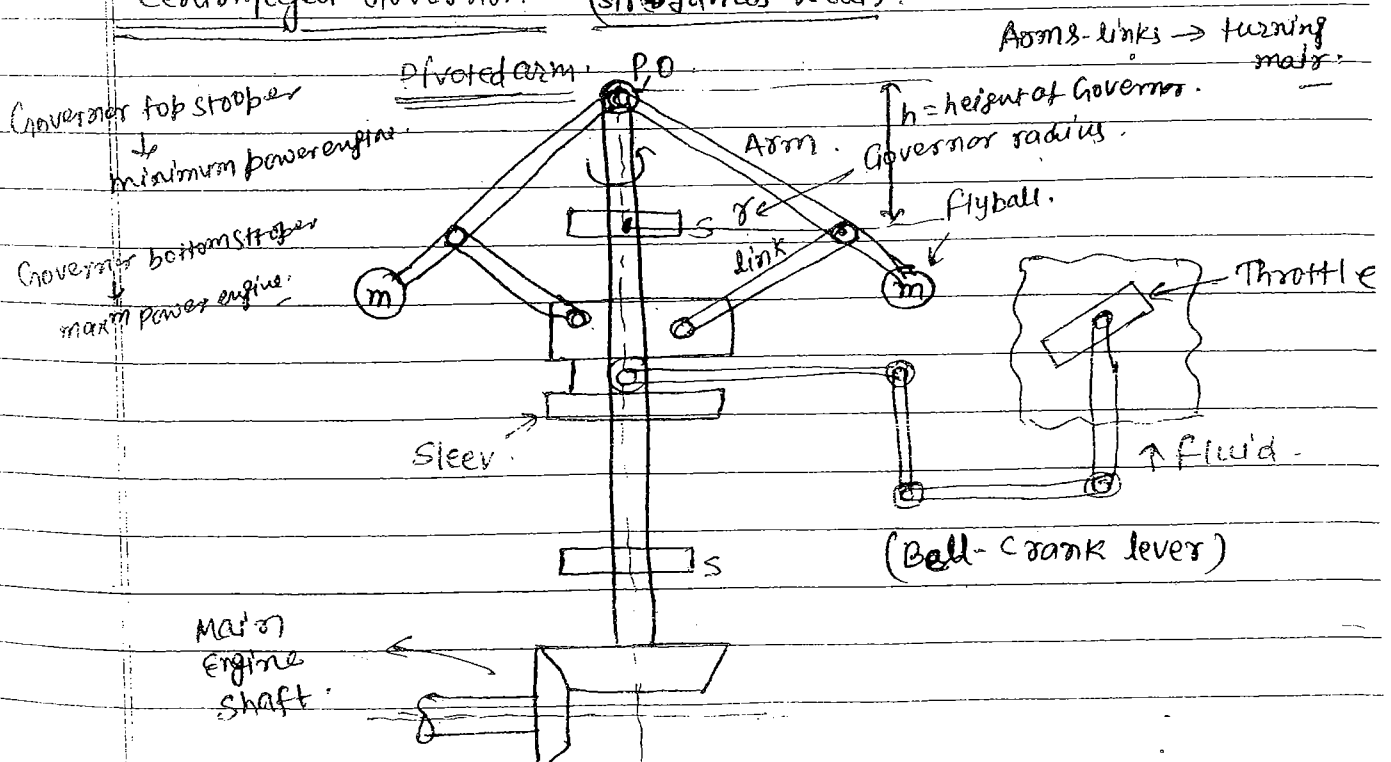 Centrifugal Governor.
Arms-links → turning
pair.
Pivoted arm.
P.O
Governer top stooper
↓
minimum power engine.
h = height of Governor.
Arm.
Governor radius.
r
S
Flyball.
link
Governer bottom stropper
↓
maxm power engine.
m
m
Throttle
Sleev.
↑ fluid.
(Bell-Crank lever)
S
Main
Engine
shaft.